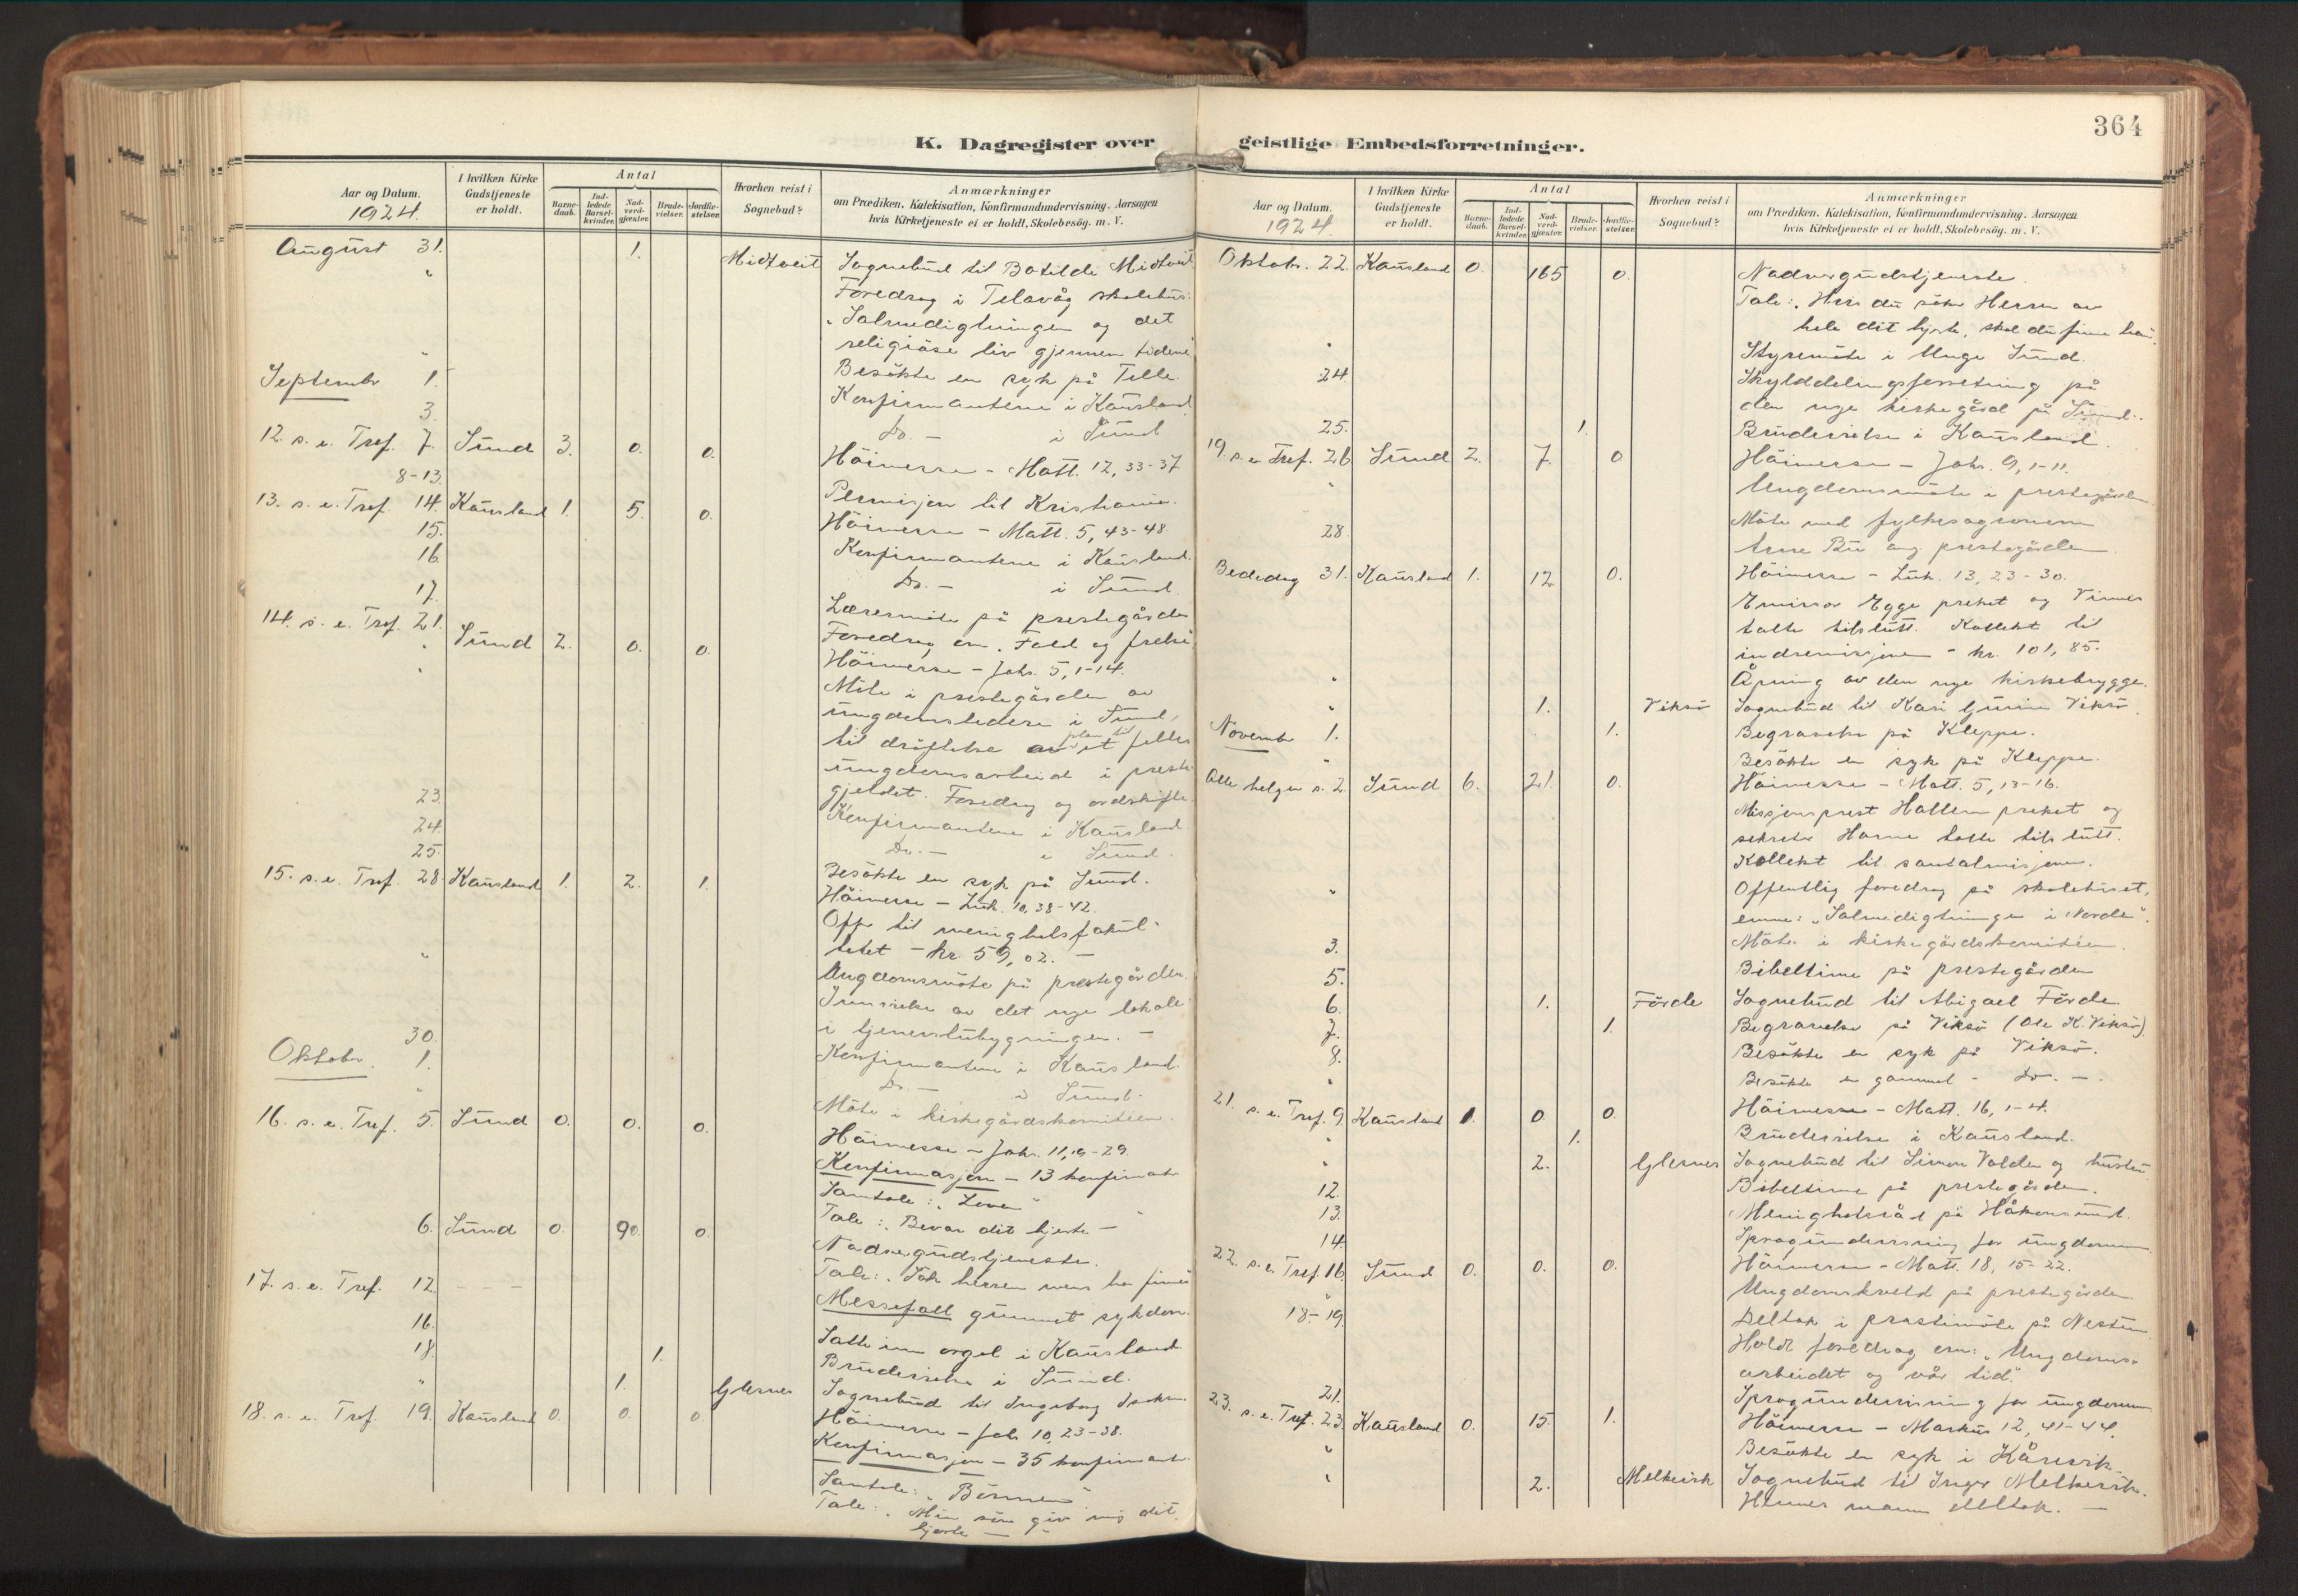 364
K. Dagregister over geistlige Embedsforretninger.
Aar og Datum. 1924.
I hvilken Kirke Gudstjeneste er holdt.
Antal
Barnedaab.
Indledede Barselkvinder.
Nadverdgjester.
Brudevielser.
Jordfæstelser.
Hvorhen reist i Sognebud?
Anmærkninger
om Prædiken, Katekisation, Konfirmandundervisning, Aarsagen
hvis Kirketjeneste ei er holdt, Skolebesøg. m. V.
August 31. 1. Midtveit Sognebud til Botilde Midtveit
" Foredrag i Telavåg skolehus:
"Salmedigtningen og det
religiöse liv gjennem tidene
" Besökte en syk på Telle.
September 1. Konfirmantene i Kausland
3. Do. — i Sund
12. s. e. Tref. 7. Sund 3. 0. 0. Höimesse - Matt. 12, 33-37
8-13. Permisjon til Kristiania.
13. s. e. Tref. 14. Kausland 1. 5. 0. Höimesse - Matt. 5, 43-48
15. Konfirmantene i Kausland.
16. Do. — i Sund
17. Læremöte på prestegården
Foredrag om "Fald og frelse"
14. s. e. Tref. 21. Sund 2. 0. 0. Höimesse - Joh. 5, 1-14.
" Möte i prestegården av
ungdomsledere i Sund,
til dröftelse av plan til et felles
ungdomsarbeid i preste-
gjeldet. Foredrag og ordskifte.
23. Konfirmantene i Kausland.
24. Do. — i Sund.
25. Besökte en syk på Sund.
15. s. e. Tref. 28. Kausland 1. 2. 1. Höimesse - Luk. 10, 38-42.
Offer til menighetsfakul-
tetet - kr. 59,02. —
" Ungdomsmöte på prestegården.
av det nye lokale
i bygningen. —
30. Konfirmantene i Kausland.
Oktober 1. Do. — i Sund.
" Möte i kirkegårdskomiteen.
16. s. e. Tref. 5. Sund 0. 0. 0. Höimesse - Joh. 11, 19-29.
Konfirmasjon - 13 konfirmanter
Samtale: "Loven"
Tale: "Bevar dit hjerte —"
6. Sund 0. 90. 0. Nadvergudstjeneste.
Tale: "Sök herren mens han finnes
17. s. e. Tref. 12. - - - Messefall grunnet sykdom.
16. Satte inn orgel i Kausland.
18. 1. Brudevielse i Sund.
" 1. Glesnes Sognebud til Ingeborg
18. s. e. Tref. 19. Kausland 0. 0. 0. Höimesse - Joh. 10, 23-38.
Konfirmasjon - 35 konfirmanter.
Samtale: "Bönnen"
Tale: "Min sön giv mig dit
hjerte — "
Aar og Datum. 1924.
I hvilken Kirke Gudstjeneste er holdt.
Antal
Barnedaab.
Indledede Barselkvinder.
Nadverdgjester.
Brudevielser.
Jordfæstelser.
Hvorhen reist i Sognebud?
Anmærkninger
om Prædiken, Katekisation, Konfirmandundervisning, Aarsagen
hvis Kirketjeneste ei er holdt, Skolebesøg. m. V.
Oktobr. 22. Kausland 0. 165 0. Nadvergudstjeneste.
Tale: "Hvis du söker Herren av
hele dit hjerte, skal du finne ham.
" Styremöte i Unge Sund.
24. Skylddelingsforretning på
den nye kirkegård på Sund.
25. 1. Brudevielse i Kausland.
19. s. e. Tref. 26. Sund 2. 7. 0 Höimesse - Joh. 9, 1-11.
" Ungdomsmöte i prestegården
28. Möte med fylkesagronom
Arne Bu ang. prestegården.
Bededag 31. Kausland 1. 12. 0. Höimesse - Luk. 13, 23-30.
Emissær Egge preket og Vinnes
talte tilslutt. Kollekt til
indremisjonen - kr. 101,85.
" Åpning av den nye kirkebrygge.
" 1. Viksö Sognebud til Kari Viksö.
November 1. 1. Begravelse på Kleppe.
" Besökte en syk på Kleppe.
Alle helgen s. 2. Sund 6. 21. 0. Höimesse - Matt. 5, 13-16.
Misjonsprest Hallen preket og
sekretær talte tilslutt.
Kollekt til santalmisjonen.
" Offentlig foredrag på skolehuset,
emne: "Salmedigtningen i Norden".
3. Möte i kirkegårdskomiteen.
5. Bibeltime på prestegården
6. 1. Förde Sognebud til Abigael Förde.
7. 1. Begravelse på Viksö (Ole K. Viksö)
8. Besökte en syk på Viksö.
" Besökte en gammel - do. —.
21. s. e. Tref. 9. Kausland 1. 0 0. Höimesse - Matt. 16, 1-4.
" 1. Brudevielse i Kausland.
" 2. Glesnes Sognebud til Simon Valden og hustru
12. Bibeltime på prestegården.
13. Menighetsråd på Håkonsund.
14. Sprogundervisning for ungdommen
22. s. e. Tref. 16. Sund 0. 0. 0. Höimesse - Matt. 18, 15-22.
" Ungdomskveld på prestegården.
18.-19. Deltok i prestemöte på Nestun
Holdt foredrag om: "Ungdoms-
arbeidet og vår tid".
21. Sprogundervisning for ungdommen
23. s. e. Tref. 23. Kausland 0. 15. 1. Höimesse - Markus 12, 41-44.
" Besökte en syk i Kårevik.
" 2. Melkevik Sognebud til Inger Melkevik.
Hennes mann deltok. —